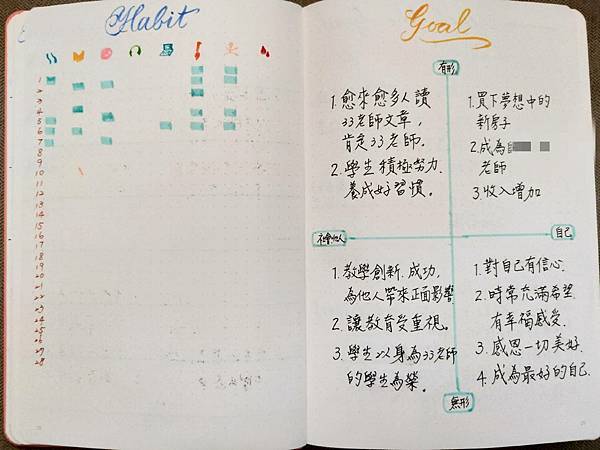 Habit
1
2
3
4
5
6
7
8
9
10
11
12
13
14
15
16
17
18
19
20
21
22
23
24
25
26
27
28
Goal
有形
1. 愈來愈多人讀
33老師文章,
肯定33老師。
2. 學生積極努力.
養成好習慣。
1. 買下夢想中的
新房子
2. 成為
老師
3. 收入增加
社會他人
自己
1. 教學創新.成功,
為他人帶來正面影響
2. 讓教育受重視。
3. 學生以身為33老師
的學生為榮。
1. 對自己有信心.
2. 時常充滿希望.
有幸福感受.
3. 感恩一切美好.
4. 成為最好的自己.
無形